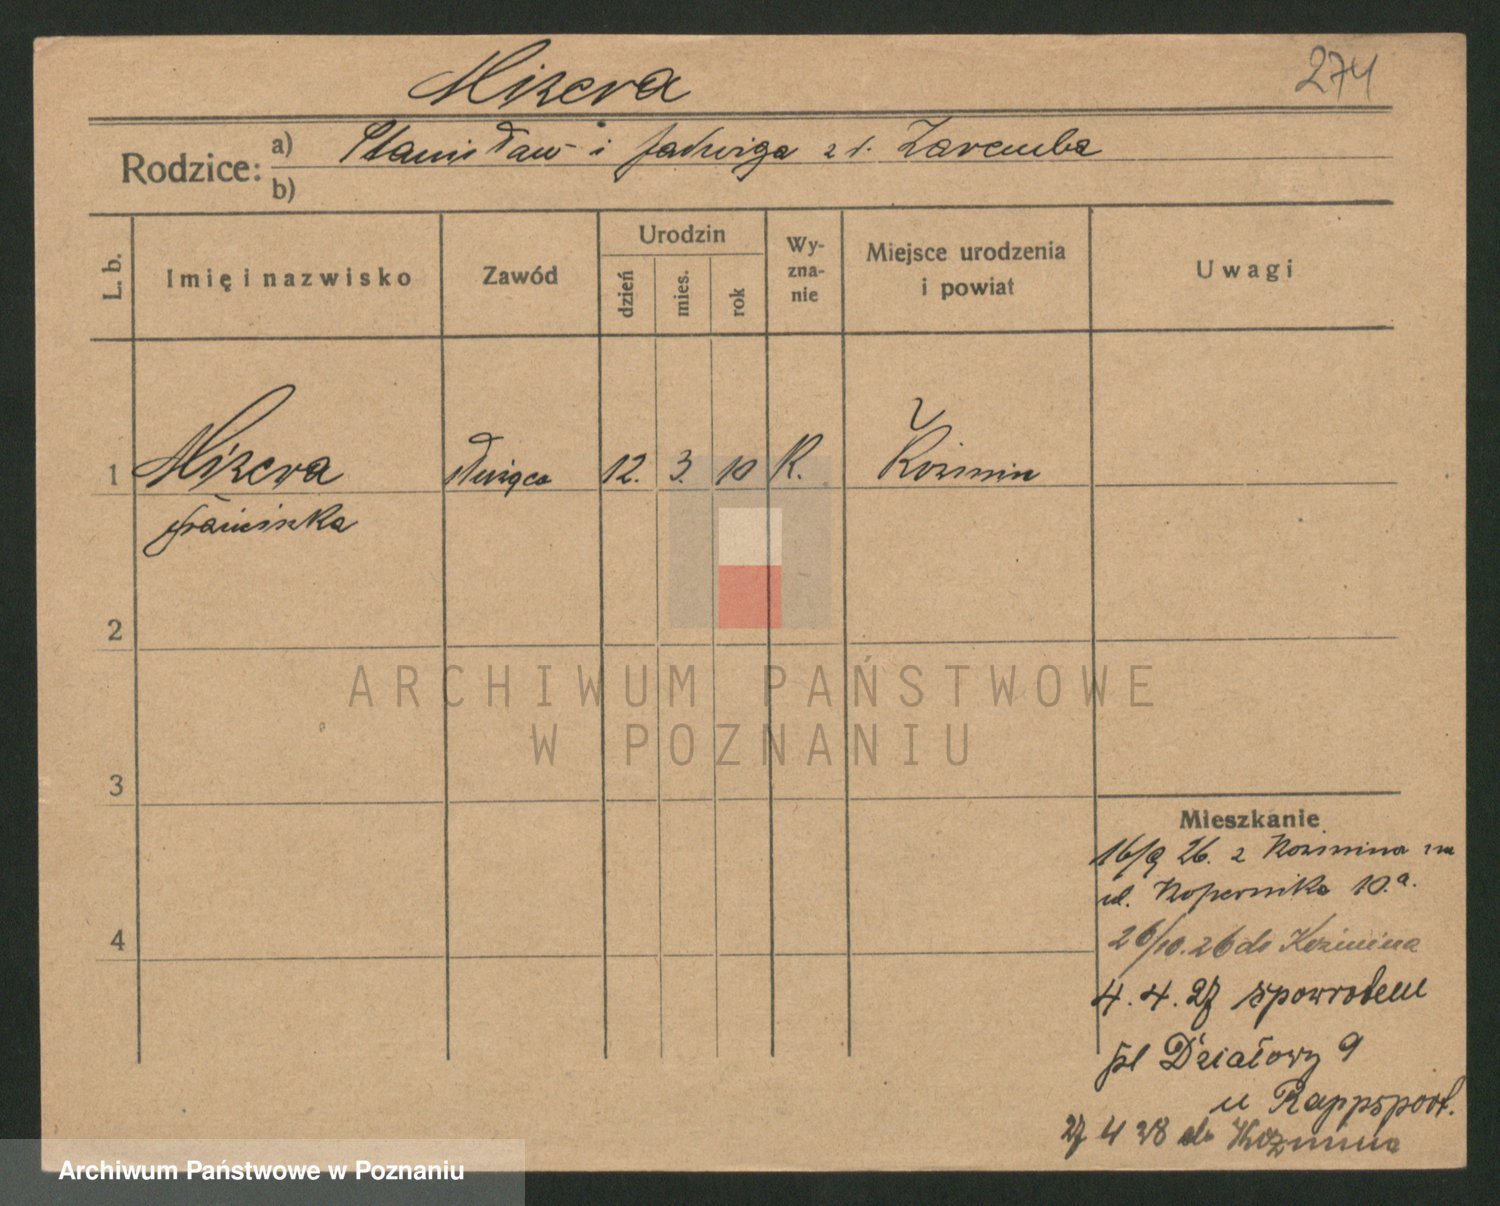 Mizera
274
Rodzice: a) Stanisław i Jadwiga z d. Zaremba
b)
L. b.
Imię i nazwisko
Zawód
Urodzin
dzień
mies.
rok
Wy-
zna-
nie
Miejsce urodzenia
i powiat
Uwagi
1 Mizera służąca 12. 3. 10 R. Koźmin
Franciszka
2
3
4
ARCHIWUM PAŃSTWOWE
W POZNANIU
Mieszkanie
16/9 26. z Koźmina na
ul. Kopernika 10.a.
26/10.26 do Koźmina
4.4.27 spowrotem
pl Działowy 9
u Rappsport.
27 4 28 do Koźmina
Archiwum Państwowe w Poznaniu